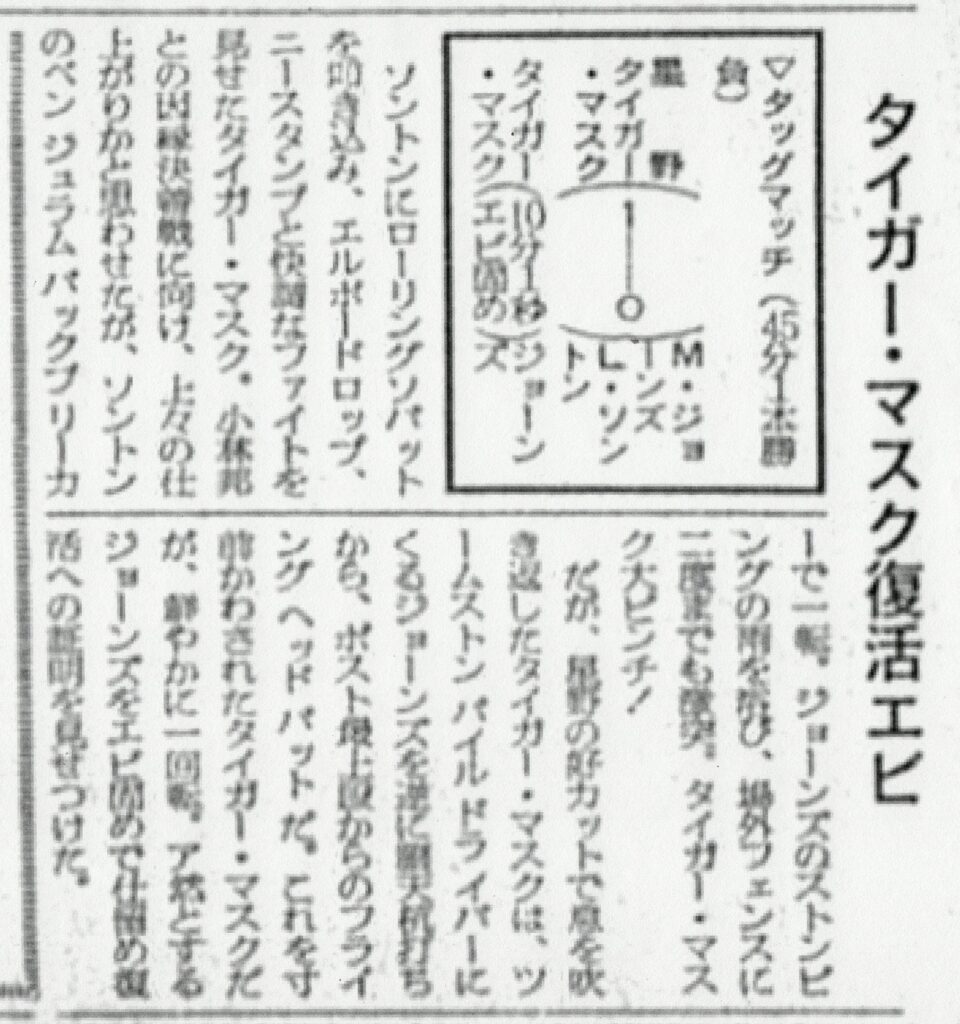 タイガー・マスク復活エビ
▽タッグマッチ（45分一本勝
負）
星野
タイガー
・マスク
1―0
M・ジョ
ーンズ
L・ソン
トン
タイガー（10分イ秒）ジョーン
・マスク（エビ固め）ズ
ソントンにローリングソバット
を叩き込み、エルボードロップ、
ニースタンプと快調なファイトを
見せたタイガー・マスク。小林邦
との因縁決着戦に向け、上々の仕
上がりかと思わせたが、ソントン
のペンジュラムバックブリーカ
ーで一転。ジョーンズのストンピ
ングの雨を浴び、場外フェンスに
二度までも激突。タイガー・マス
ク大ピンチ！
だが、星野の好カットで息を吹
き返したタイガー・マスクは、ツ
ームストンパイルドライバーに
くるジョーンズを逆に脳天杭打ち
から、ポスト最上段からのフライ
ングヘッドバットだ。これを寸
前かわされたタイガー・マスクだ
が、鮮やかに一回転。ア然とする
ジョーンズをエビ固めで仕留め復
活への証明を見せつけた。